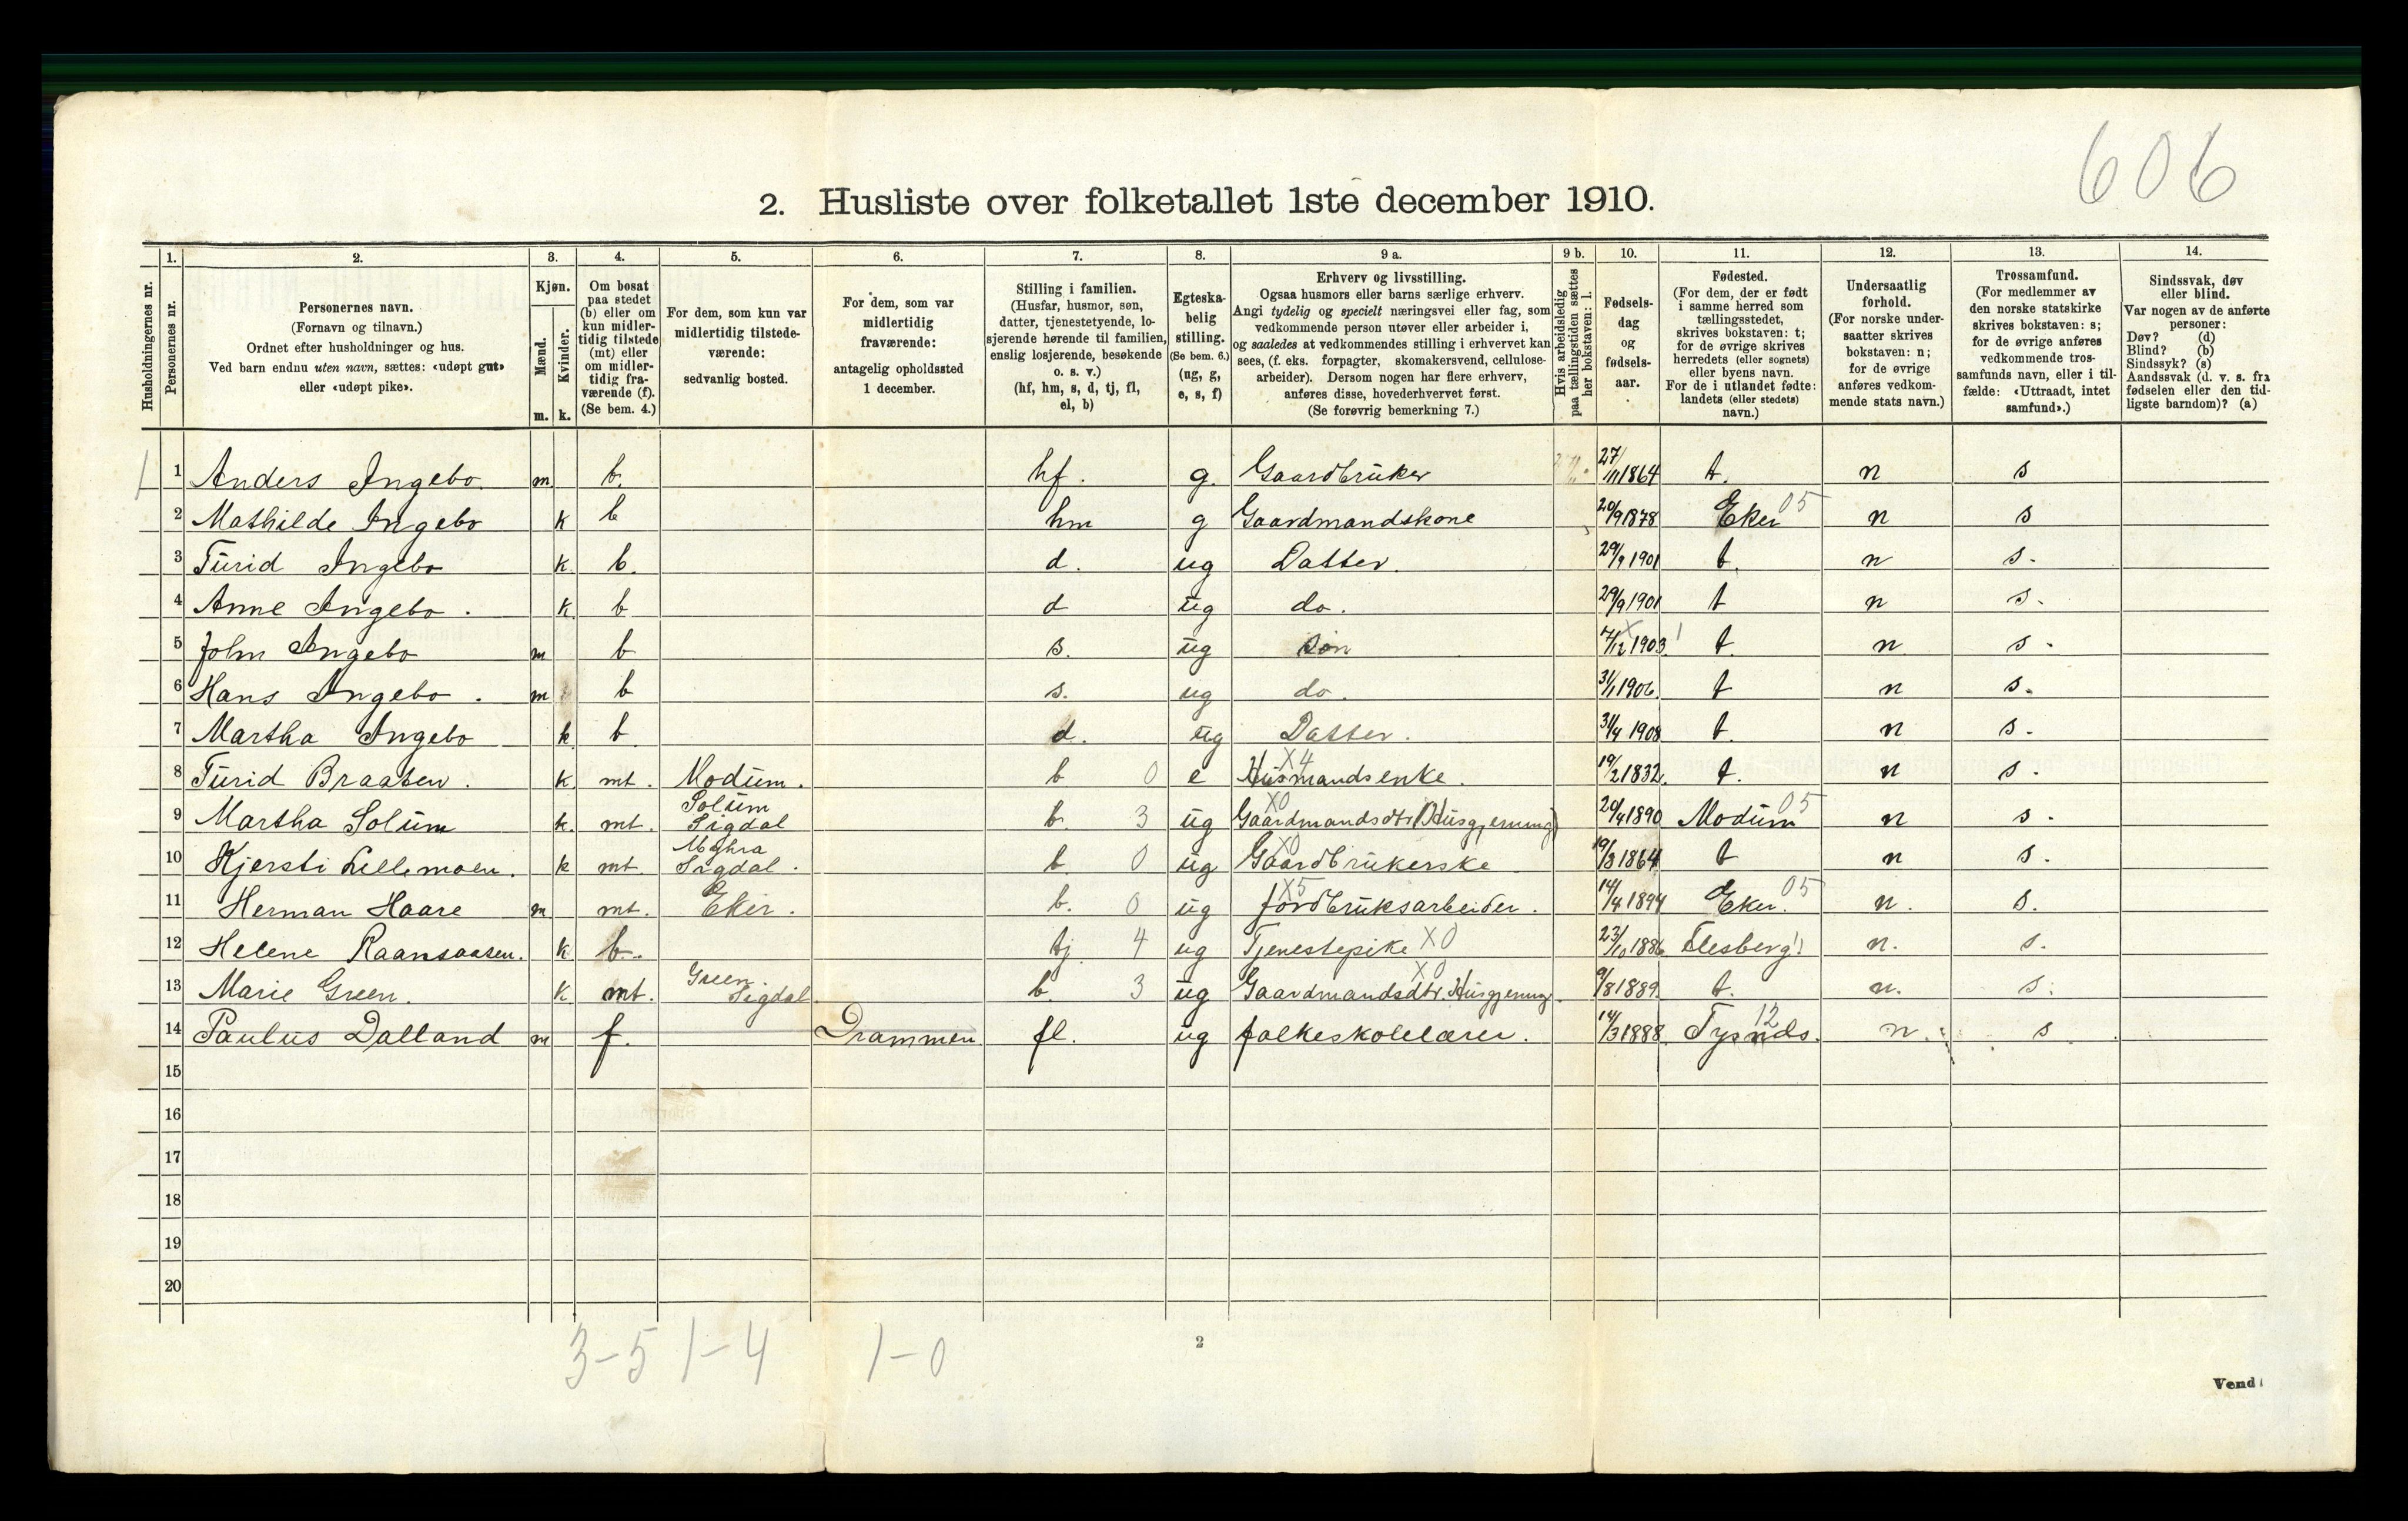 606
2. Husliste over folketallet 1ste december 1910.
Husholdningernes nr.
1. Personernes nr.
2. Personernes navn.
(Fornavn og tilnavn.)
Ordnet efter husholdninger og hus.
Ved barn endnu uten navn, sættes: «udøpt gut»
eller «udøpt pike».
3. Kjøn.
Mænd. m.
Kvinder. k.
4. Om bosat
paa stedet
(b) eller om
kun midler-
tidig tilstede
(mt) eller
om midler-
tidig fra-
værende (f).
(Se bem. 4.)
5. For dem, som kun var
midlertidig tilstede-
værende:
sedvanlig bosted.
6. For dem, som var
midlertidig
fraværende:
antagelig opholdssted
1 december.
7. Stilling i familien.
(Husfar, husmor, søn,
datter, tjenestetyende, lo-
sjerende hørende til familien,
enslig losjerende, besøkende
o. s. v.)
(hf, hm, s, d, tj, fl,
el, b)
8. Egteska-
belig
stilling.
(Se bem. 6.)
(ug, g,
e, s, f)
9 a. Erhverv og livsstilling.
Ogsaa husmors eller barns særlige erhverv.
Angi tydelig og specielt næringsvei eller fag, som
vedkommende person utøver eller arbeider i,
og saaledes at vedkommendes stilling i erhvervet kan
sees, (f. eks. forpagter, skomakersvend, cellulose-
arbeider). Dersom nogen har flere erhverv,
anføres disse, hovederhvervet først.
(Se forøvrig bemerkning 7.)
9 b. Hvis arbeidsledig
paa tællingstiden sættes
her bokstaven: l.
10. Fødsels-
dag
og
fødsels-
aar.
11. Fødested.
(For dem, der er født
i samme herred som
tællingsstedet,
skrives bokstaven: t;
for de øvrige skrives
herredets (eller sognets)
eller byens navn.
For de i utlandet fødte:
landets (eller stedets)
navn.)
12. Undersaatlig
forhold.
(For norske under-
saatter skrives
bokstaven: n;
for de øvrige
anføres vedkom-
mende stats navn.)
13. Trossamfund.
(For medlemmer av
den norske statskirke
skrives bokstaven: s;
for de øvrige anføres
vedkommende tros-
samfunds navn, eller i til-
fælde: «Uttraadt, intet
samfund».)
14. Sindssvak, døv
eller blind.
Var nogen av de anførte
personer:
Døv? (d)
Blind? (b)
Sindssyk? (s)
Aandssvak (d. v. s. fra
fødselen eller den tid-
ligste barndom)? (a)
1 1 Anders Ingebo. m. b. hf. g. Gaardbruker 27/11 1864 t. n s
2 Mathilde Ingebo k b hm g Gaardmandskone 20/9 1878 Eker 05 n s
3 Turid Ingebo k b. d. ug Datter. 29/9 1901 t. n s.
4 Anne Ingebo. k b d ug do. 29/9 1901 t n s.
5 John Ingebo m b s. ug Søn 7/12 1903 t. n s.
6 Hans Ingebo. m b s. ug do. 31/1 1906. t n s.
7 Martha Ingebo k b d. ug Datter. 31/4 1908 t. n s.
8 Turid Braaten. k mt. Modum. b 0 e Husmandsenke. X4 19/2 1832. t. n s.
9 Martha Solum k. mt. Solum Sigdal b. 3 ug Gaardmandsdtr (Husgjerning) X0 20/4 1890 Modum 05 n s.
10 Kjersti Lillemoen. k mt. Sigdal. b. 0 ug Gaardbrukerske X0 19/3 1864 t n s.
11 Herman Haare m mt. Eker. b. 0 ug Jordbruksarbeider. X5 14/4 1894 Eker. 05 n. s.
12 Helene Raansaasen. k b. tj 4 ug Tjenestepike X0 23/10 1886 Flesberg n. s.
13 Marie Green. k mt. Green Sigdal. b. 3 ug Gaardmandsdtr. Husgjerning. X0 9/8 1889. t. n. s.
14 Paulus Dalland m f. Drammen fl. ug folkeskolelærer. 14/3 1888 Tysnds. 12 n. s
15
16
17
18
19
20
3-5 1-4 1-0
2
Vend!